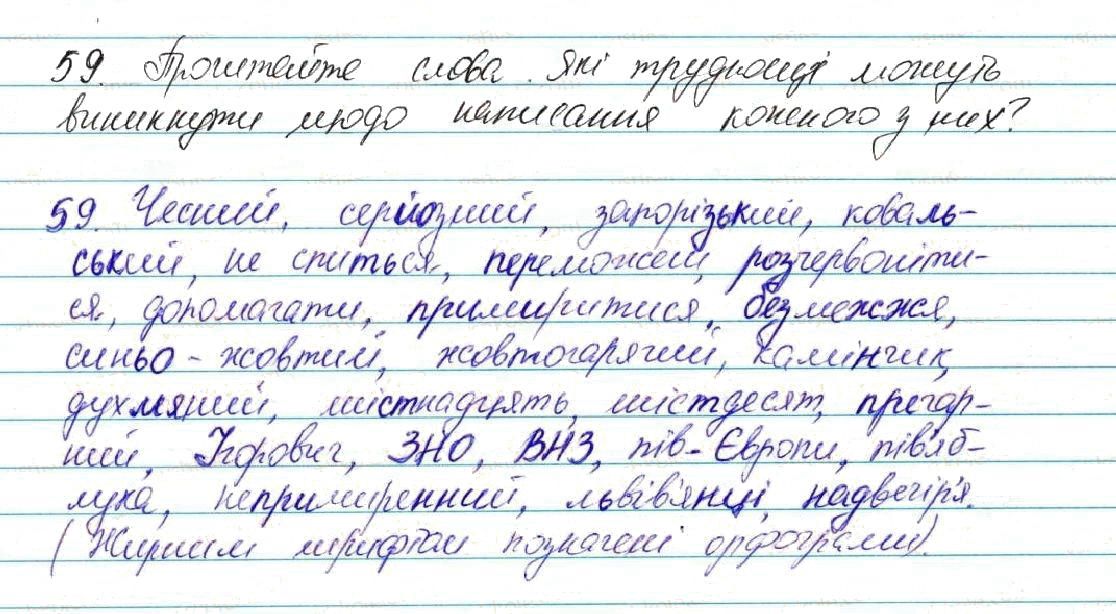 59. Прочитайте слова. Які труднощі можуть
виникнути щодо написання кожного з них?
59. Чесний, серйозний, запорізький, коваль-
ський, не спиться, переможець, розчервоніти-
ся, допомагати, примиритися, безмежжя,
синьо-жовтий, жовтогарячий, камінчик,
духмяний, шістнадцять, шістдесят, прегар-
ний, Ігорович, ЗНО, ВНЗ, пів-Європи, пів'яб-
лука, непримиренний, львів'янці, надвечір'я.
(Жирним шрифтом позначені орфограми).